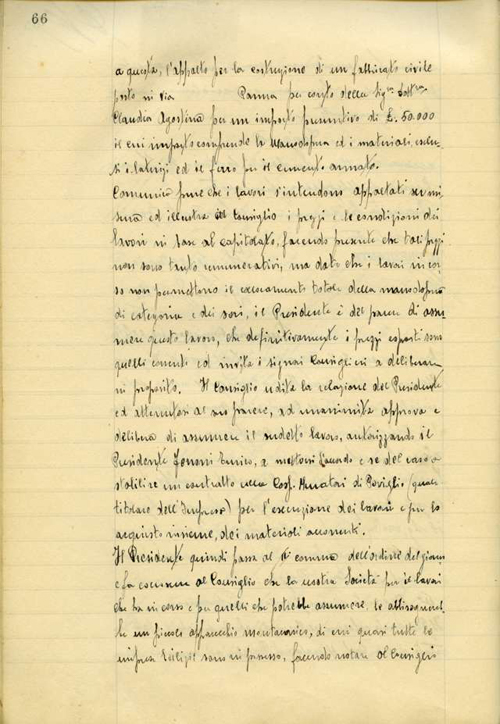 66
a questa, l'appalto per la costruzione di un fabbricato civile
posto in via Parma per conto della Sig.na Dott.ssa
Claudia Agostina per un importo presuntivo di £. 50.000
il cui importo comprende la Manodopera ed i materiali, esclu-
si i laterizi ed il ferro per il cemento armato.
Comunica pure che i lavori s'intendono appaltati a mi-
sura ed illustra al Consiglio i prezzi e le condizioni dei
lavori in base al capitolato, facendo presente che tali prezzi
non sono tanto remunerativi, ma dato che i lavori in cor-
so non permettono il totale della manodopera
di categoria e dei soci, il Presidente è del parere di assu-
mere questo lavoro, che definitivamente i prezzi esposti sono
quelli correnti ed invita i signori Consiglieri a deliberare
in proposito. Il Consiglio udita la relazione del Presidente
ed attenutosi al suo parere, ad unanimità approva e
delibera di assumere il suddetto lavoro, autorizzando il
Presidente Enrico, a mettersi d'accordo e se del caso a
stabilire un contratto colla Coop. Muratori di Poviglio (quale
titolare dell'Impresa) per l'esecuzione dei lavori e per lo
acquisto insieme, dei materiali occorrenti.
Il Presidente quindi passa al comma dell'ordine del giorno
e fa osservare al Consiglio che la nostra Società per il lavori
che ha in corso e per quelli che potrebbe assumere, le abbisognereb-
be un piccolo apparecchio montacarico, di cui quasi tutte le
imprese edilizie sono in possesso, facendo notare al Consiglio